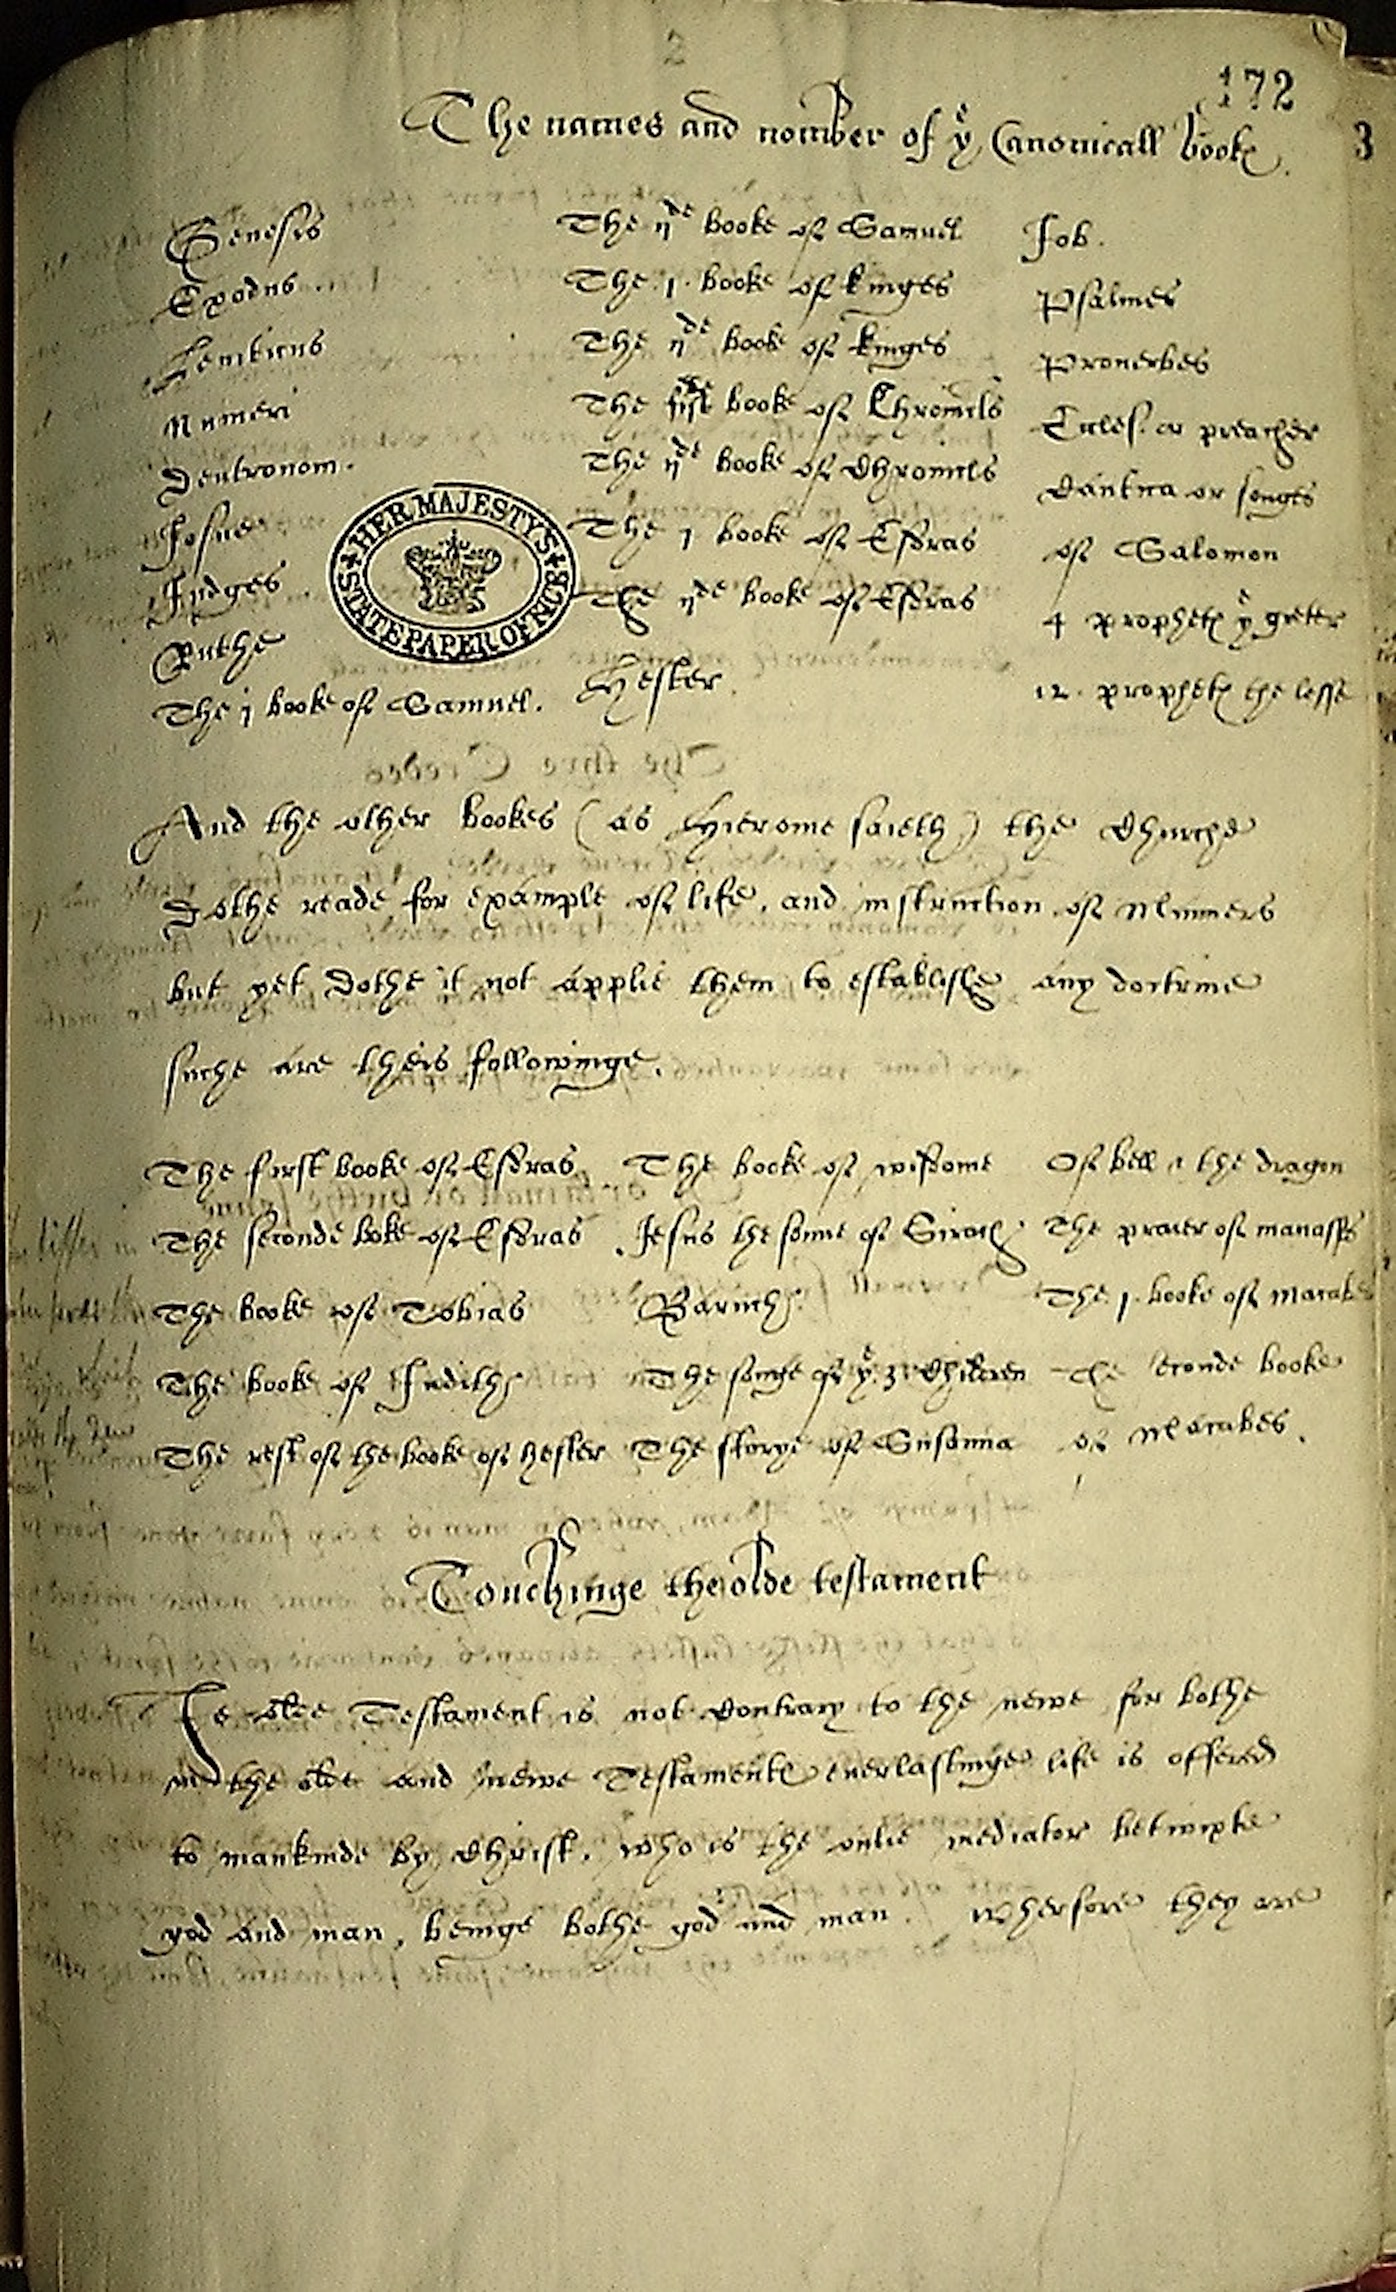 2
172
3
The names and nomber of yͤ Canonicall bookes.
Genesis
Exodus
Leuiticus
Numeri
Deutronom.
Josue
Judges
Ruthe
The j booke of Samuel.
The ijde booke of Samuel
The .1. booke of kinges
The ijde booke of kinges
The booke of Chronicls
The ijde booke of Chronicls
The j booke of Esdras
The ijde booke of Esdras
Hester.
Job.
Psalmes
Prouerbes
Eccles. or preacher
Cantica or songes
of Salomon
4 prophetes yͤ greter
12. prophetes the lesse
HER MAJESTY'S
STATE PAPER OFFICE
And the other bookes (as Hierome saieth) the Churche
dothe reade for example of life, and instruction of Manners
but yet dothe it not applie them to establishe any doctrine
suche are theis followinge.
The first booke of Esdras
The seconde boke of Esdras
The booke of Tobias
The booke of Judith
The rest of the booke of hester
The booke of wisdome
Jesus the sonne of Sirach
Baruch.
The songe of yͤ 3 Children
The storye of Susanna
Of bell & the dragon
The praier of manasses
The 1. booke of Macabes
The seconde booke
of Macabes.
Touchinge the olde testament
The olde Testament is not Contrary to the newe for bothe
in the olde and newe Testamentes euerlastinge life is offered
to mankinde by Christ, who is the onlie mediator betwixte
god and man, beinge bothe god and man. Wherfore they are